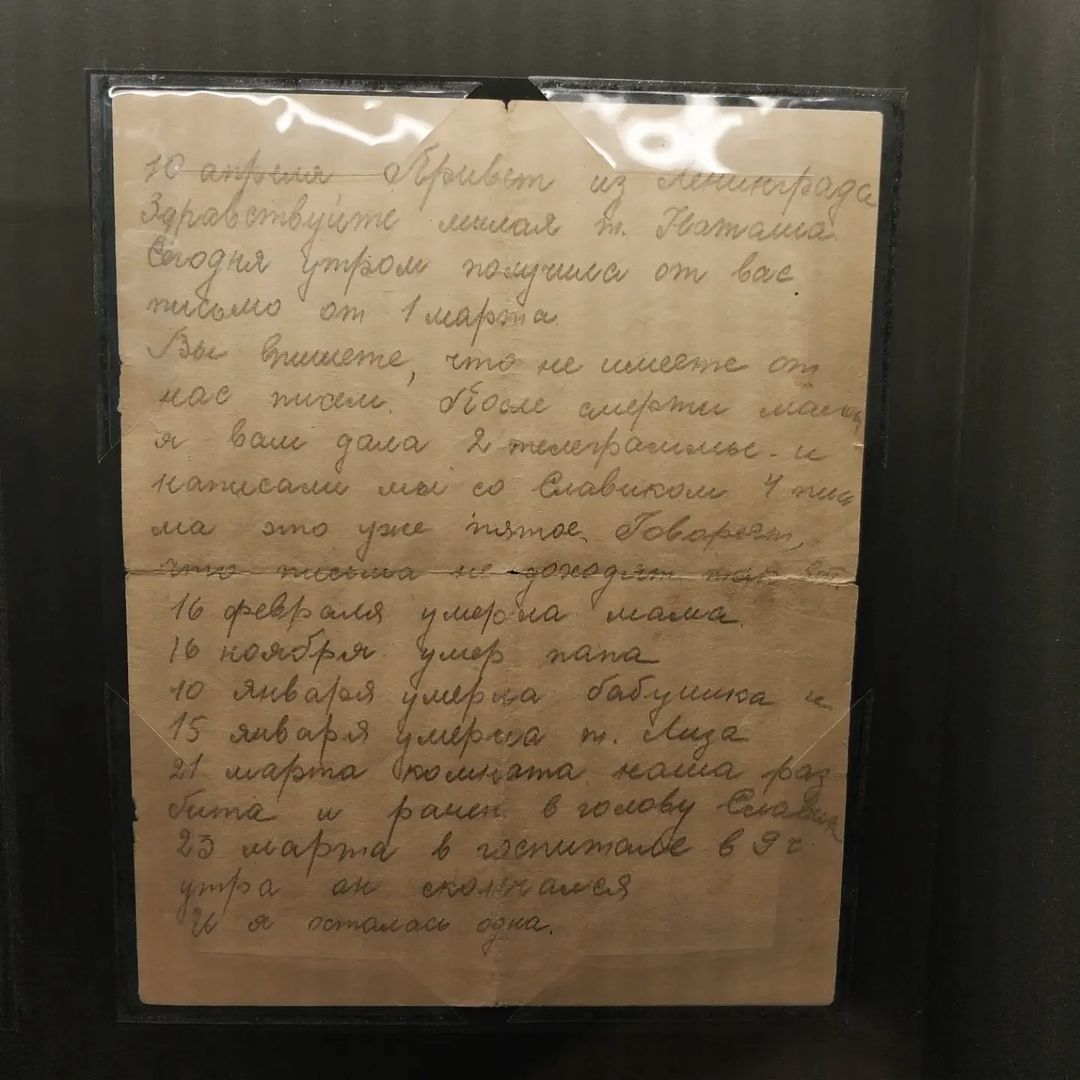 10 апреля Привет из Ленинграда
Здравствуйте милая т. Наташа.
Сегодня утром получила от вас
письмо от 1 марта
Вы пишете, что не имеете от
нас писем. После смерти мамы
я вам дала 2 телеграммы и
написали мы со Славиком 4 пись
ма это уже пятое. Говорят,
что письма не доходят так вот
16 февраля умерла мама.
16 ноября умер папа
10 января умерла бабушка и
15 января умерла т. Лиза
21 марта комната наша раз-
бита и ранен в голову Славик
23 марта в госпитале в 9 ч.
утра он скончался
И я осталась одна.